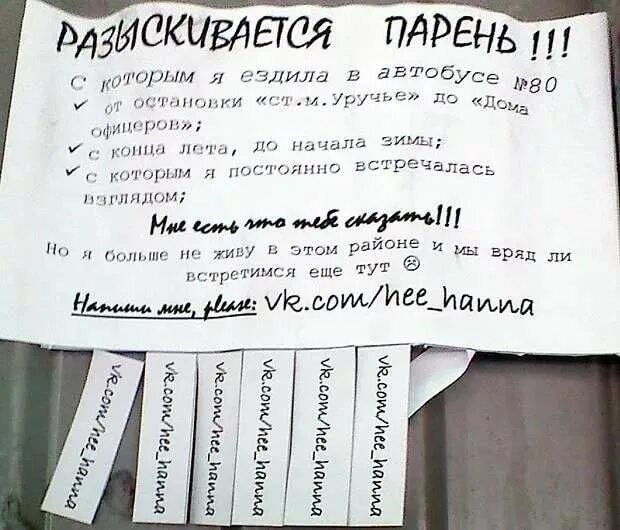 РАЗЫСКИВАЕТСЯ ПАРЕНЬ !!!
С которым я ездила в автобусе №80
✓ от остановки «ст.м.Уручье» до «Дома
офицеров»;
✓ с конца лета, до начала зимы;
✓ с которым я постоянно встречалась
взглядом;
Мне есть что тебе сказать!!!
Но я больше не живу в этом районе и мы вряд ли
встретимся еще тут ☹
Напиши мне, please: vk.com/hee_hanna
vk.com/hee_hanna
vk.com/hee_hanna
vk.com/hee_hanna
vk.com/hee_hanna
vk.com/hee_hanna
vk.com/hee_hanna